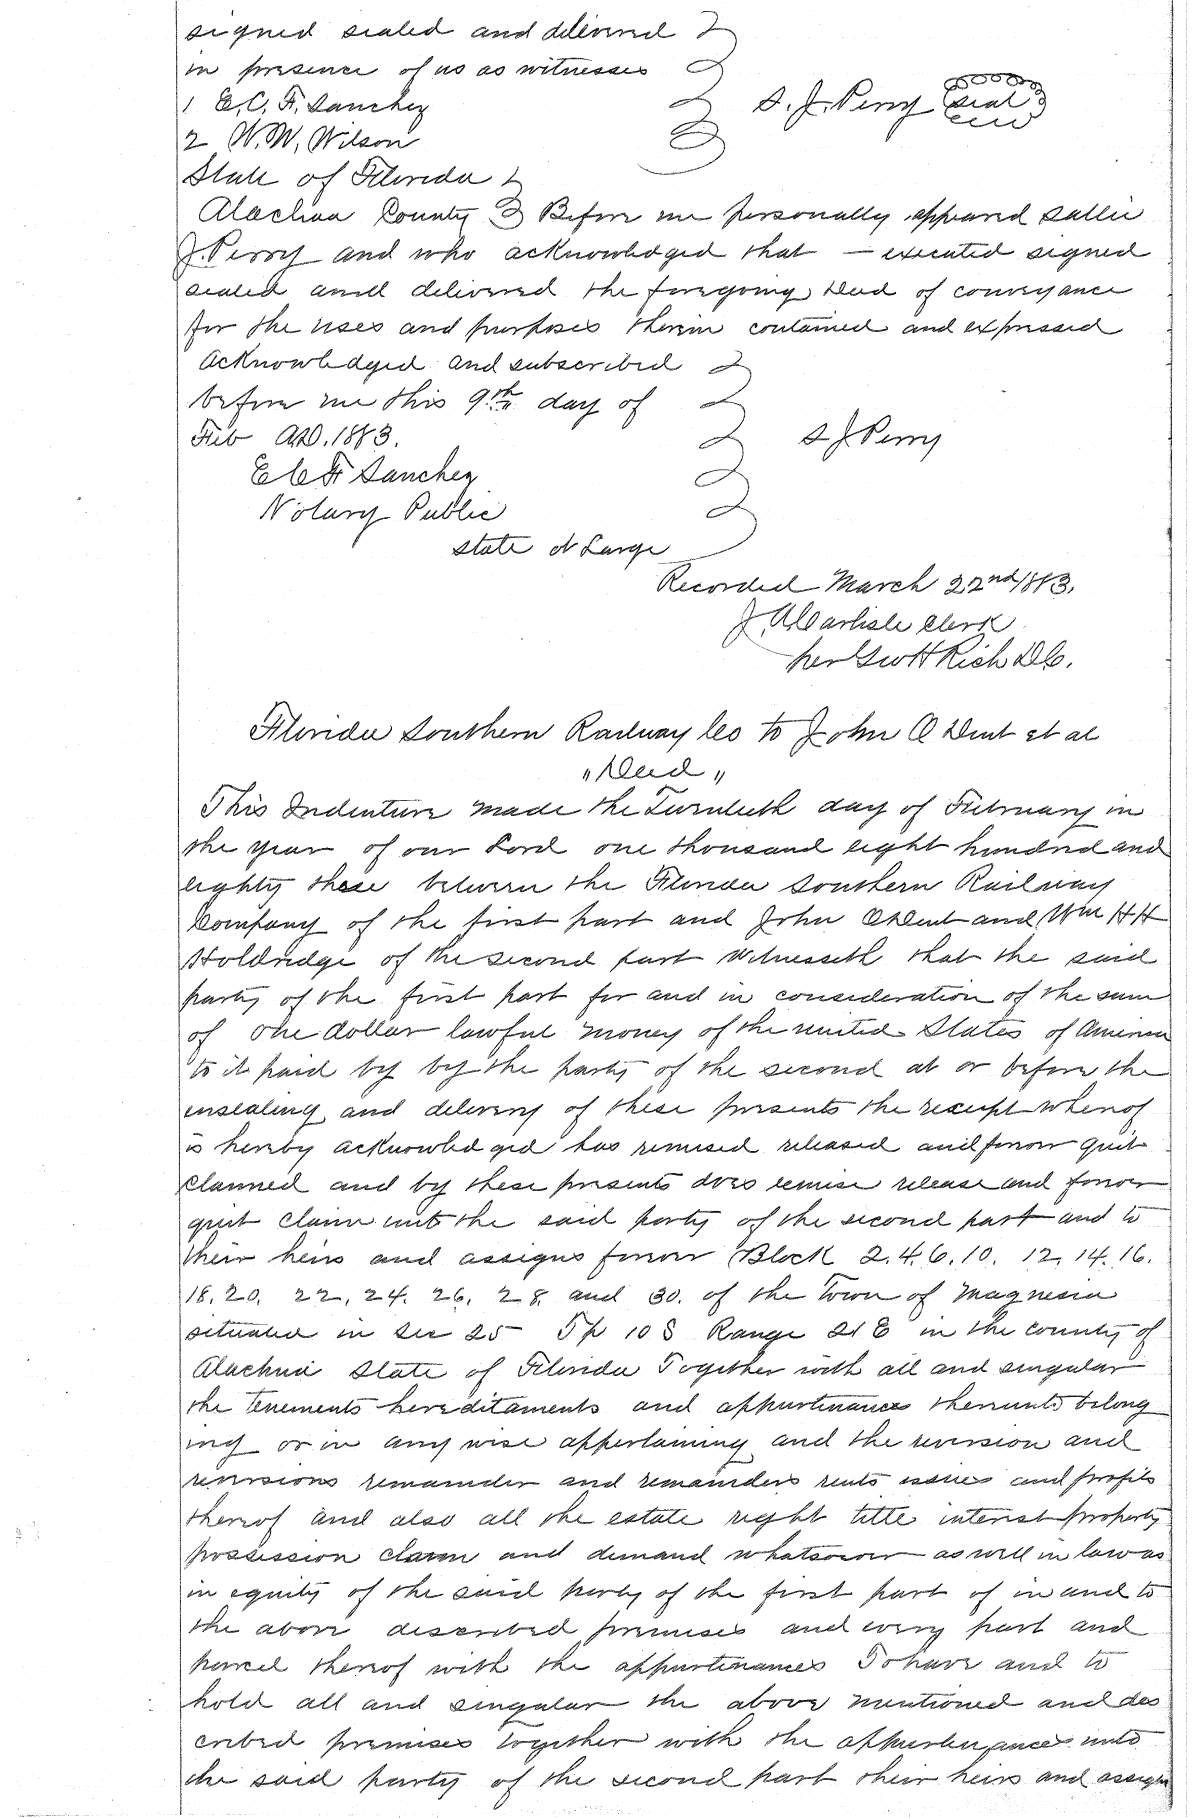 signed sealed and delivered
in presence of us as witnesses
1 E. C. F. Sanchez
S. J. Perry seal
2 W. W. Wilson
State of Florida
Alachua County Before me personally appeared Sallie
J. Perry and who acknowledged that — executed signed
sealed and delivered the foregoing Deed of conveyance
for the uses and purposes therein contained and expressed
Acknowledged and subscribed
before me this 9th day of
Feb A.D. 1883.
S J Perry
E C F Sanchez
Notary Public
state at Large
Recorded March 22nd 1883.
J. A. Carlisle Clerk
per Geo H Rich D.C.
Florida Southern Railway Co to John Q Dent et al
"Deed"
This Indenture made the Twentieth day of February in
the year of our Lord one thousand eight hundred and
eighty three between the Florida Southern Railway
Company of the first part and John Q Dent and Wm H H
Holdridge of the second part Witnesseth that the said
party of the first part for and in consideration of the sum
of one dollar lawful money of the united States of America
to it paid by by the party of the second at or before the
ensealing and delivery of these presents the receipt whereof
is hereby acknowledged has remised released and forever quit
claimed and by these presents does remise release and forever
quit claim unto the said party of the second part and to
their heirs and assigns forever Block 2. 4. 6. 10. 12. 14. 16.
18. 20. 22. 24. 26. 28. and 30. of the Town of Magnesia
situated in Sec 25 Tp 10 S Range 21 E in the county of
Alachua State of Florida Together with all and singular
the tenements hereditaments and appurtinances thereunto belong
ing or in any wise appertaining and the reversion and
reversions remainder and remainders rents issues and profits
thereof and also all the estate right title interest property
possession claim and demand whatsoever as well in law as
in equity of the said party of the first part of in and to
the above described premises and every part and
parcel thereof with the appurtinances To have and to
hold all and singular the above mentioned and des
cribed premises together with the appurtenances unto
the said party of the second part their heirs and assigns